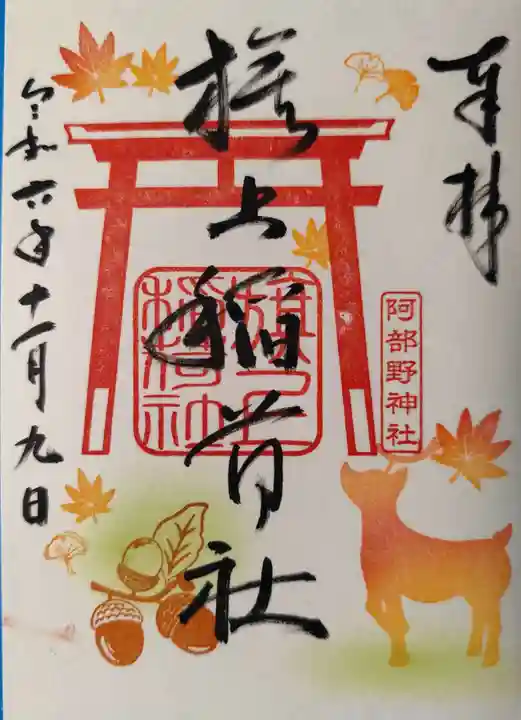 奉拝
阿部野神社
旗上稲荷社
旗上稲荷社
令和六年十一月九日